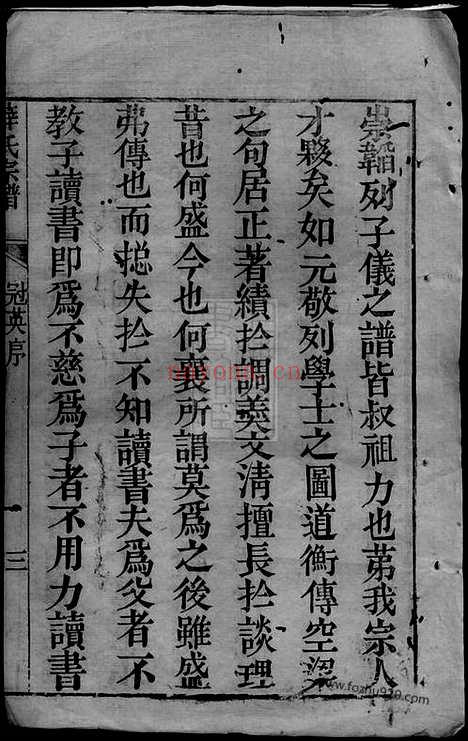 崇韜列子儀之譜皆叔祖力也苐我宗人
才夥矣如元敬列學士之圖道衡傳空梁
之句居正著績扵調羙文清擅長扵談理
昔也何盛今也何衰所謂莫爲之後雖盛
弗傳也而揔失扵不知讀書夫爲父者不
教子讀書即爲不慈爲子者不用力讀書
薛氏宗譜
冠英序
三
www.fozhu920.com